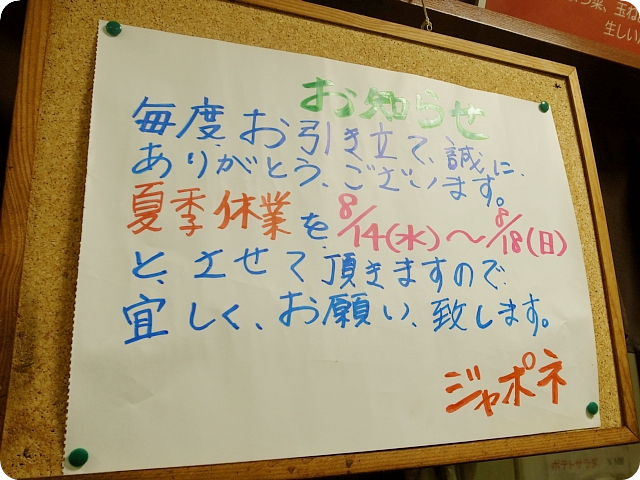 お知らせ
毎度、お引き立て、誠に、
ありがとう、ございます。
夏季休業を 8/14(水)〜8/18(日)
と、させて頂きますので、
宜しく、お願い、致します。
ジャポネ
ポテトサラダ